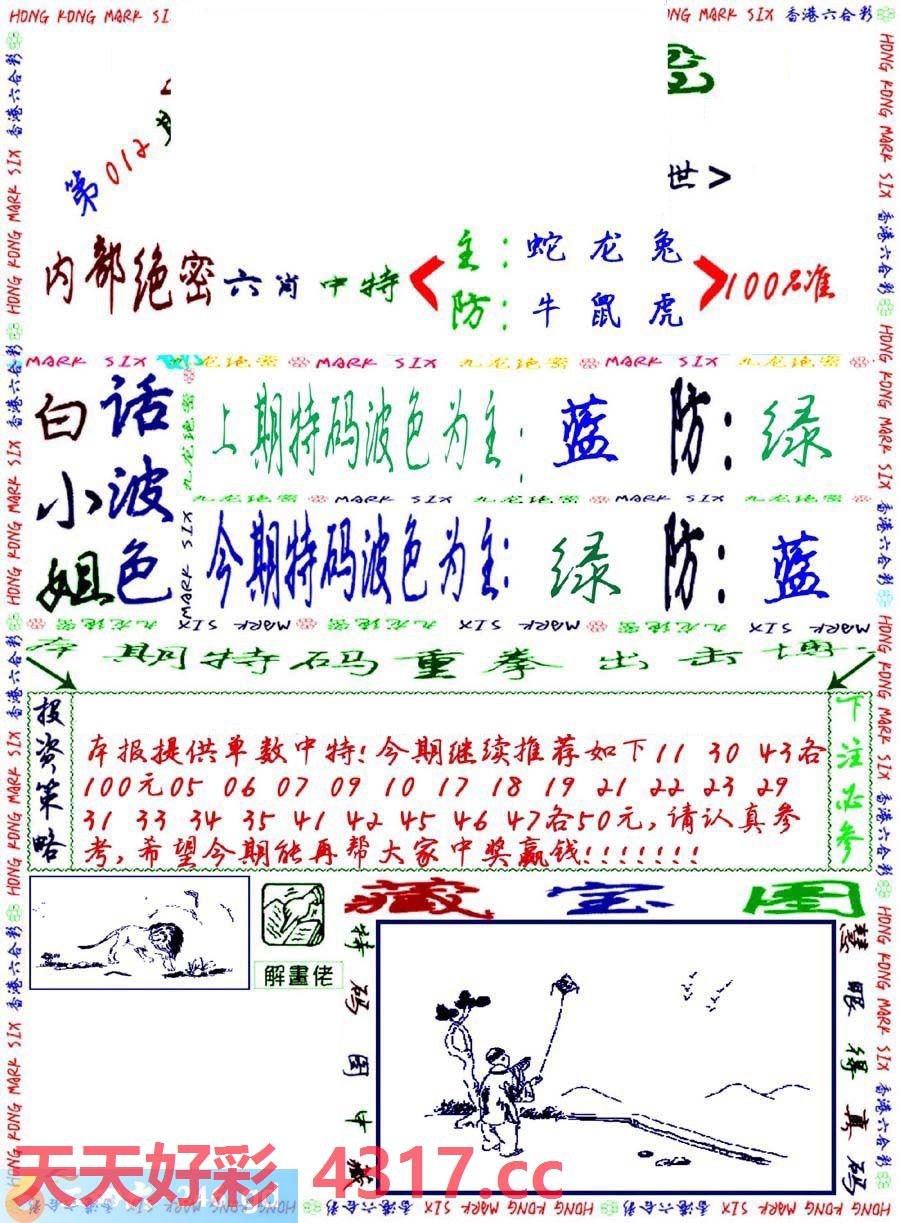 HONG KONG MARK SIX 香港六合彩
第012
世>
内部绝密六肖中特
主：蛇龙兔
防：牛鼠虎
100%准
MARK SIX 九龙绝密 MARK SIX 九龙绝密 MARK SIX 九龙绝密
白话
小波
姐色
上期特码波色为主：蓝 防：绿
九龙绝密 MARK SIX 九龙绝密 MARK SIX 九龙绝密
今期特码波色为主：绿 防：蓝
本期特码重拳出击
投资策略
本报提供单数中特!今期继续推荐如下11 30 43各
100元05 06 07 09 10 17 18 19 21 22 23 29
31 33 34 35 41 42 45 46 47各50元,请认真参
考,希望今期能再帮大家中奖赢钱!!!!!!!
下注必参
解畫佬
藏宝图
特码图中藏
慧眼得真码
天天好彩 4317.cc